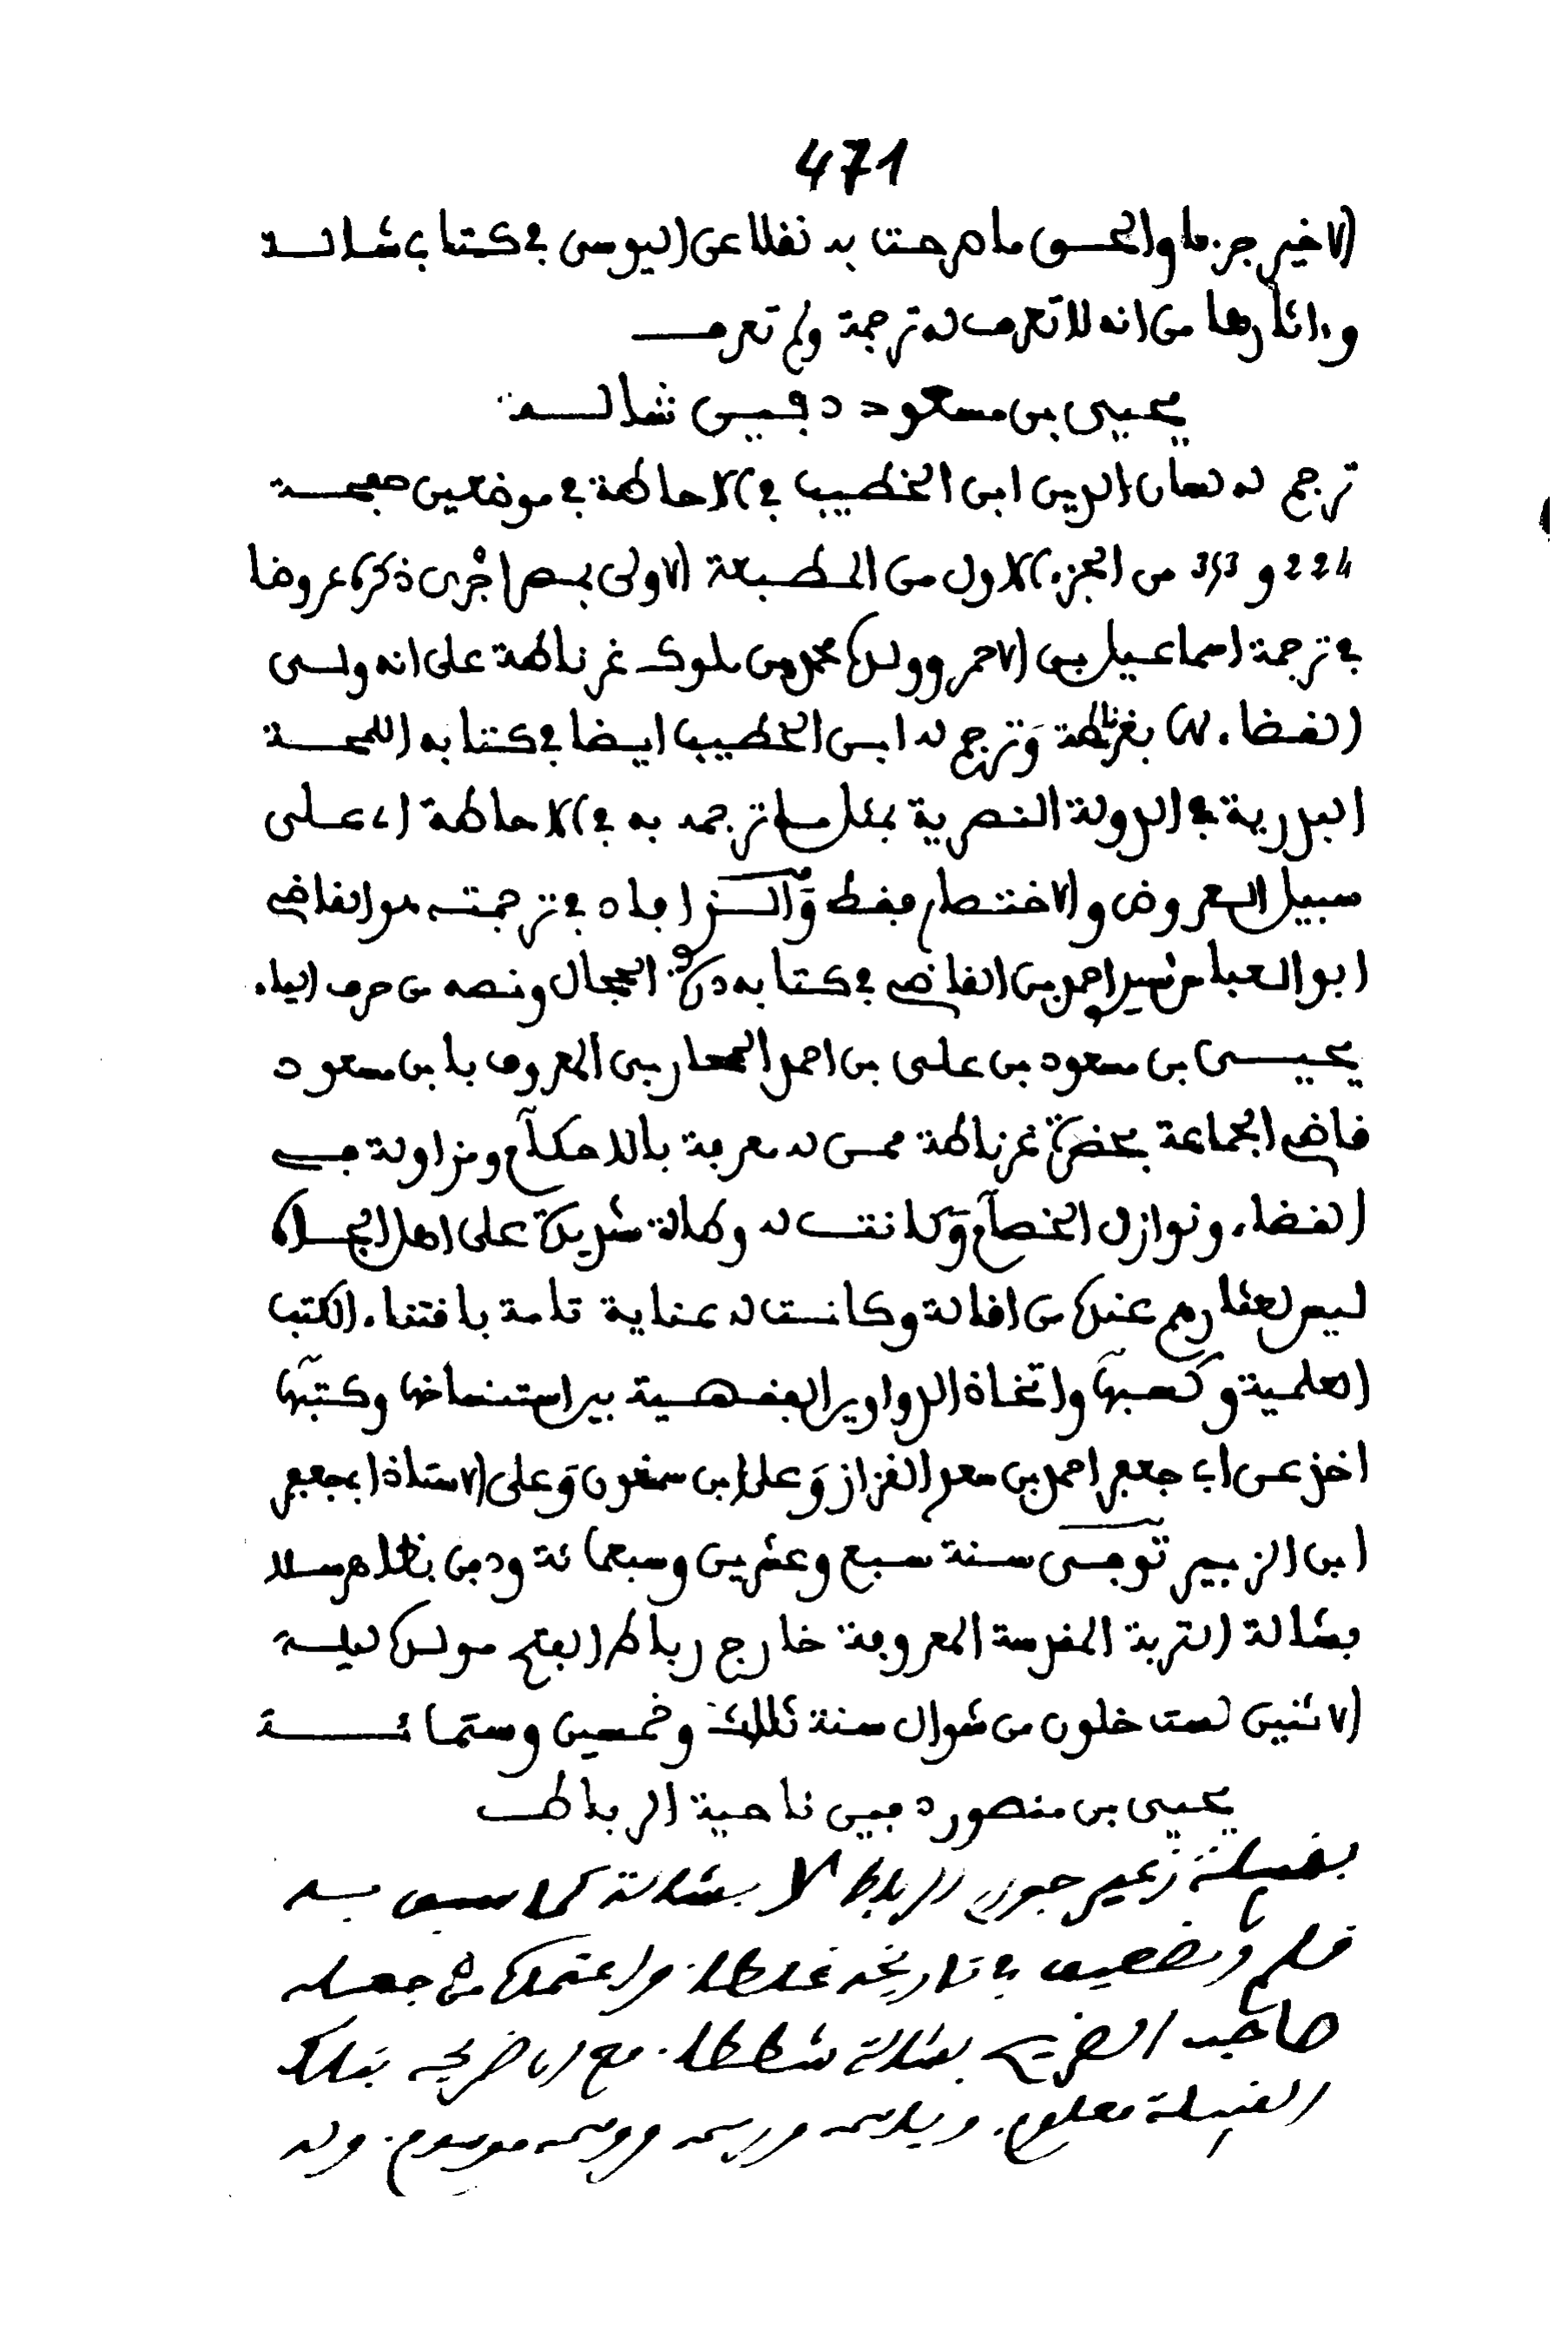 471
الاخير جزما والحق ما صرحت به نقلا عن اليوسي في كتاب شالة
وءاثارها من انه لا تعرف له ترجمة ولم تعرف
يحيى بن مسعود دفين شالة
ترجم له لسان الدين ابن الخطيب في الاحاطة في موضعين صفحة
224 و 353 من الجزء الاول من الطبعة الاولى بمصر اجرى ذكره عروضا
في ترجمة اسماعيل بن الاحمر وولده محمد من ملوك غرناطة على انه ولي
القضاء له بغرناطة وترجم له ابن الخطيب ايضا في كتابه اللمحة
البدرية في الدولة النصرية بمثل ما ترجمه به في الاحاطة اي على
سبيل العروض والاختصار فقط والذي افاد في ترجمته هو القاضي
ابو العباس سيد احمد بن القاضي في كتابه درة الحجال ونصه من حرف الياء
يحيى بن مسعود بن علي بن احمد المحاربي المعروف بابن مسعود
قاضي الجماعة بحضرة غرناطة ممن له معرفة بالاحكام ومزاولة في
القضاء ونوازل الخصام وكانت له وطاة شديدة على اهل الجاه
ليس لعثارهم عنده من اقالة وكانت له عناية تامة باقتناء الكتب
العلمية وكسبها واتخاذ الدواوير الفقهية بير استنساخها وكتبها
اخذ عن ابي جعفر احمد بن سعد القزاز وعلى ابن سمعون وعلى الاستاذ ابي جعفر
ابن الزبير توفي سنة سبع وعشرين وسبعمائة ودفن بظاهر سلا
بشالة التربة المقدسة المعروفة خارج رباط الفتح مولده ليلة
الاثنين لست خلون من شوال سنة ثلاث وخمسين وستمائة
يحيى بن منصور دفين ناحية الرباط
بقبيلة زعير حوز الرباط لا بشالة كما سبق به
قلم وضعيف في تاريخه غلطا. واعتمده من جعله
صاحب الضريح بشالة شططا. مع ان ضريحه بتلك
القبيلة معلوم. وباسمه ورسمه ووسمه موسوم. وله